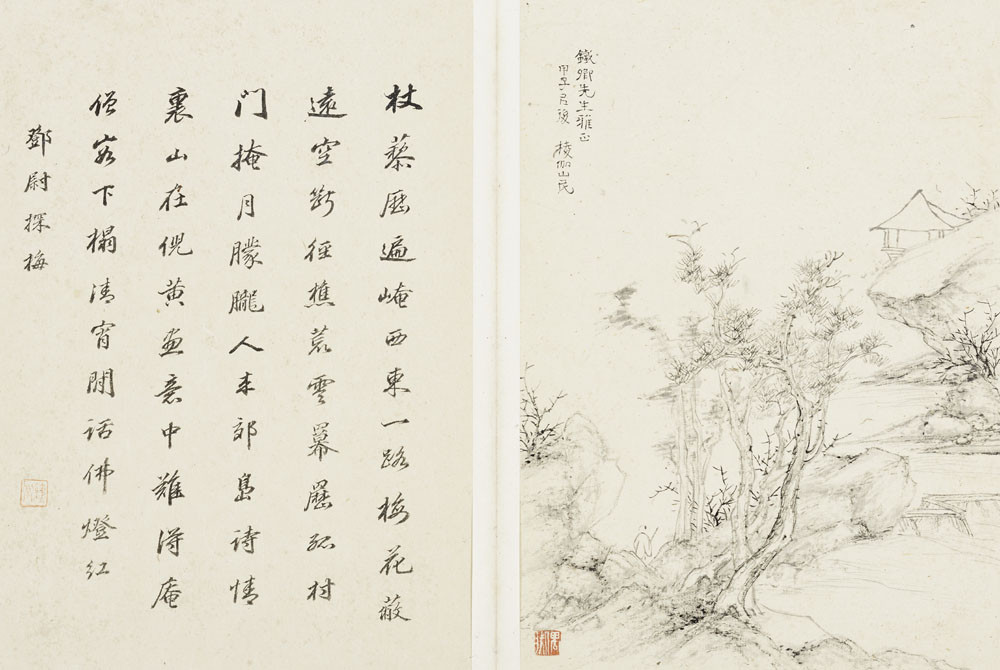 鐵卿先生雅正
甲子後 棱伽山民
杖藜歷遍崦西東一路梅花蔽
遠空斷徑樵荒雲冪歷孤村
門掩月朦朧人来郊島詩情
裏山在倪黄畫意中難得庵
僧容下榻清宵閒話佛燈紅
鄧尉探梅